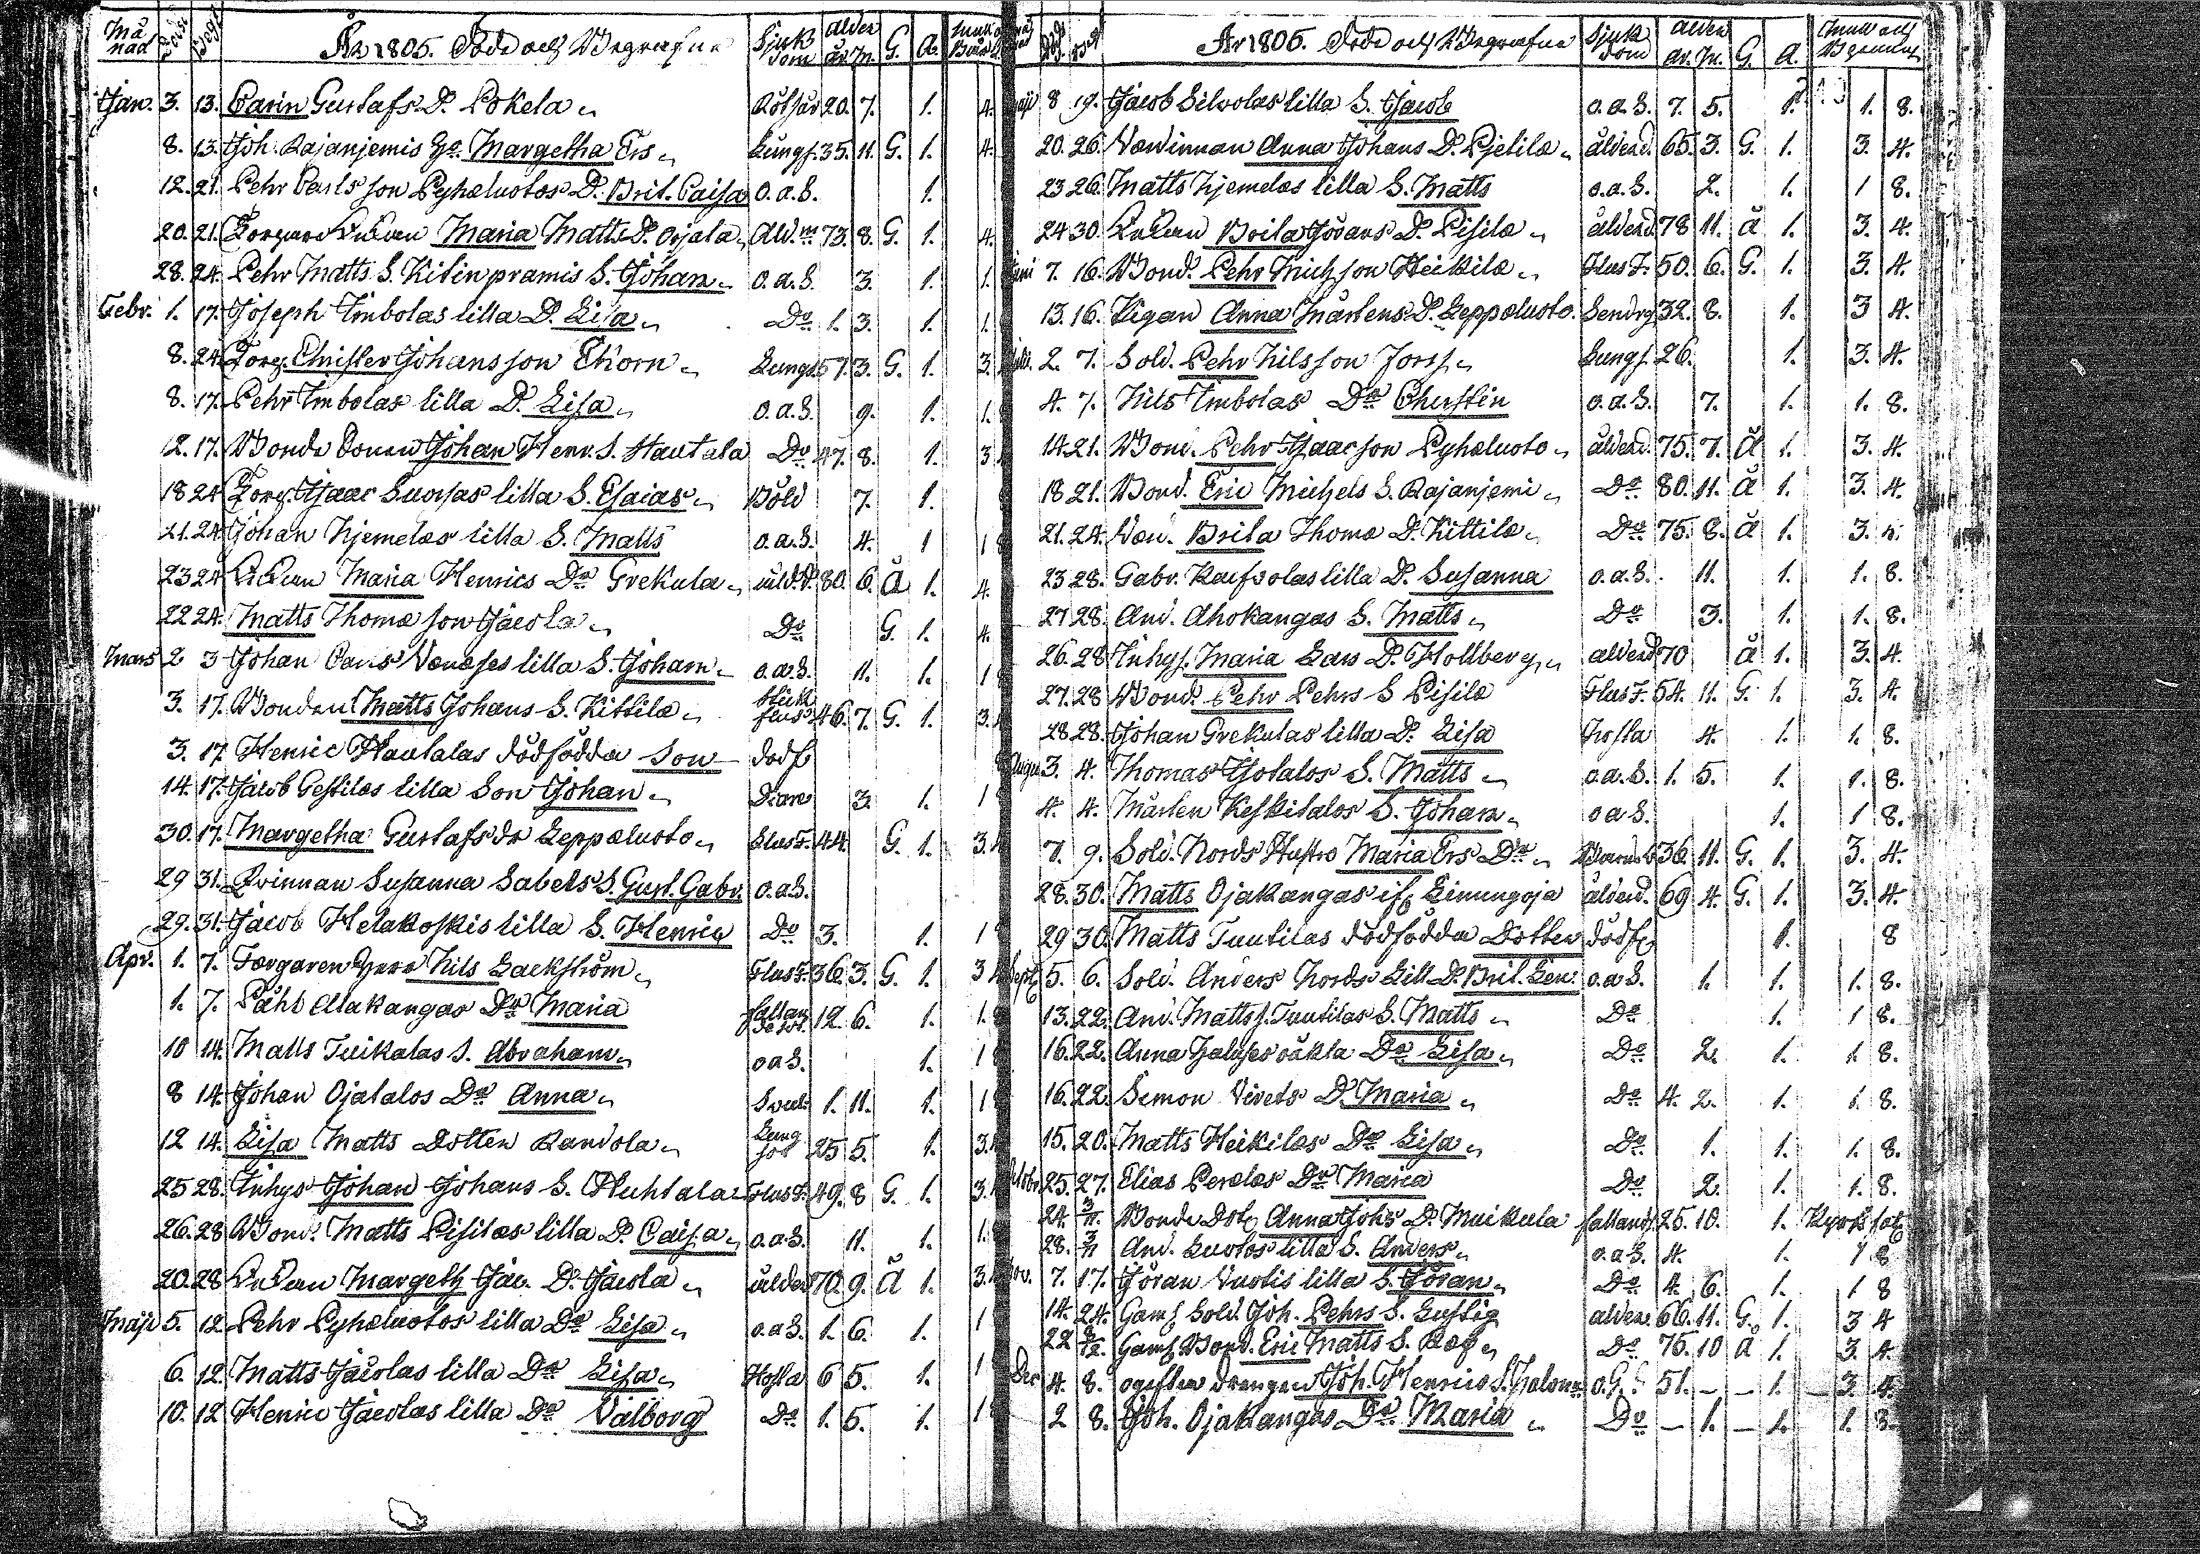 Må nad Död Begr År 1806. Döde och Begrafne Sjuk dom ålder år. M. G. A.
Jan. 3. 13. Carin Gustafs D. Pokela 20. 7. 1. 4.
8. 13. Joh. Rajaniemis Margetha Ers Lungs. 35. 11. G. 1. 4.
12. 21. Pehr Carls son Pyhæluotos D. Brit. Caisa o.a.S. 1.
20. 21. Maria Matts D. Orjala Ald. 73. 8. G. 1. 4.
28. 24. Pehr Matts S. Kitinpramis S. Johan o.a.S. 3. 1. 1.
Febr. 1. 17. JosephImbolas lilla D. Lisa Do 1. 3. 1. 1.
8. 24. Torp. Christer Johansson Thorn Lungs. 57. 3. G. 1. 3.
8. 17. Pehr Imbolas lilla D. Lisa o.a.S. 9. 1. 1.
12. 17. Bonde Sonen Johan Henr. S. Hautala Do 47. 8. 1. 3.
18 24 Torp. Isaac Suorsas lilla S. Esaias Böld 7. 1.
21. 24. Johan Njemelæs lilla S. Matts o.a.S. 4. 1 1
23 24 Enkan Maria Henrics Dr Grekula åld.d. 80. 6. Ä 1. 4.
22 24. Matts Thomæ son Jacola Do G. 1. 4.
Mars 2 3 Johan Carls lilla S. Johan o.a.S. 11. 1. 1
3. 17. Bonden Matts Johans S. Kittilæ 46. 7. G. 1. 3.
3. 17. Henric Hautalas dödfödda Son dödf
14. 17. Jacob Gestilæs lilla Son Johan Diare 3. 1. 1
30. 17. Margetha Gustafs dr Leppæluoto FlusF. 44. G. 1. 3.
29 31. Qvinnan Susanna Sabels S. Gust. Gabr. o.a.S.
29. 31. Jacob Helakoskis lilla S. Henric Do 3. 1. 1
Apr. 1. 7. Færgaren Herr Nils Backström FlusF. 36. 3. G. 1. 3
1. 7. Påhl Allakangas Dr Maria 12 6. 1. 1.
10 14. Matts Tuikalas S. Abraham o a S. 1. 1
8 14. Johan Ojatalos Dr Anna 1. 11. 1. 1
12 14. Lisa Matts Dotter Randola Lung sot 25 5. 1. 3.
25 28. Inhys Johan Johans S. Huhtala FlusF. 49. 8 G. 1. 3.
26. 28 Bond. Matts Pisilæs lilla D. Caisa o.a.S. 11. 1. 1.
20. 28 Enkan Margeth Jac. D. Jacola ålder 70. 9. Ä 1. 3.
Maji 5. 12 Pehr Pyhæluotos lilla Dr Lisa o.a S. 1. 6. 1. 1
6. 12 Matts Jacolas lilla Dr Lisa Hosta 6 5. 1. 1
10. 12 Henric Jacolas lilla Dr Valborg Do 1. 5. 1. 1
År 1806. Döde och Begrafne Sjuk dom ålder år. M. G. A.
Maji 8 19. Jacob Silvolas lilla S. Jacob o.a.S. 7. 5. 1. 1. 8.
20. 26. Værdinnan Anna Johans D. Pjetilæ ålderd. 65. 3. G. 1. 3. 4.
23 26 Matts Njemelæs lilla S. Matts o.a.S. 2. 1. 1 8.
24 30. Enkan Brita Jörans D. Pisilæ ålderd 78 11. ä 1. 3. 4.
Juni 7. 16. Bond. Pehr Michson Heikilæ FlusF. 50. 6. G. 1. 3. 4.
13. 16. Pigan Anna Mårtens D. Leppæluoto. 32. 8. 1. 3 4.
Juli. 2. 7. Sold. Pehr Nilsson Forss Lungs. 26. 1. 3. 4.
4. 7. Nils Imbolas Dr Cherstin o.a.S. 7. 1. 1. 8.
14. 21. Bond. Pehr Isaacson Pyhæluoto ålderd. 75. 7. ä 1. 3. 4.
18 21. Bond. Eric Michels S. Rajanjemi Do 80. 11. ä 1. 3. 4.
21. 24. Væri. Brita Thomæ D. Kittilæ Do 75. 8. ä 1. 3.
23 28. Gabr. Raisvolas lilla D. Susanna o.a.S. 11. 1. 1. 8.
27 28. And. Ahokangas S. Matts Do 3. 1. 1. 8.
26. 28 Inhys. Maria Lars D. Hollberg ålderd 70 ä 1. 3. 4.
27. 28 Bond. Pehr Pehrs S Pisilæ FlusF. 54. 11. G. 1. 3. 4.
28. 28. Johan Grekulas lilla D. Lisa Hosta 4. 1. 1. 8.
Augu 3. 4. Thomas Jotalos S. Matts o.a.S. 1. 5. 1. 1. 8.
4. 4. Mårten Keskitalos S. Johan o a S. 1. 1 8.
7. 9. Sold. Nords Hustro Maria Ers Dr Barnsb 36 11. G. 1. 3. 4.
28. 30. Matts Ojakangas if. Liminngoja ålderd. 69 4. G. 1. 3. 4.
29 30 Matts Tuutilas dödfödda Dotter dödf 1. 8
Sept 5. 6. Sold. Anders Nords Lill D. Brit. Len. o.a.S. 1. 1. 1. 8.
13. 22. And. Matts S. Tuutilas S. Matts Do 1. 1 8.
16. 22. Anna Jalises oäkta Dr Lisa Do 2. 1. 1. 8.
16. 22. Simon Virets D. Maria Do 4. 2. 1. 1. 8.
15. 20. Matts Heikilæs Dr Lisa Do 1. 1. 1. 8.
Octobr 25. 27. Elias Perælæs Dr Maria Do 2. 1. 1. 8.
24. 3/11. Bonde Dotr Anna Johs D. Muikula 25. 10. 1.
28. 3/11 And. Luotos lilla S. Anders o.a.S. 4. 1. 1 8
Nov. 7. 17. Jöran Vuotis lilla S. Jöran Do 4. 6. 1. 1 8
14. 24. Gaml Sold. Joh. Pehrs S. Lustig ålder. 66. 11. G. 1. 3 4
22 Gaml Bond. Eric Matts S. Ræf Do 75. 10 ä 1. 3. 4.
Dec 4. 8. ogifta drengen Joh. Henrics S. 51. – – 1. – 3. 4.
2 8. Joh. Ojakangas Dr Maria Do – 1. – 1. 1. 8.